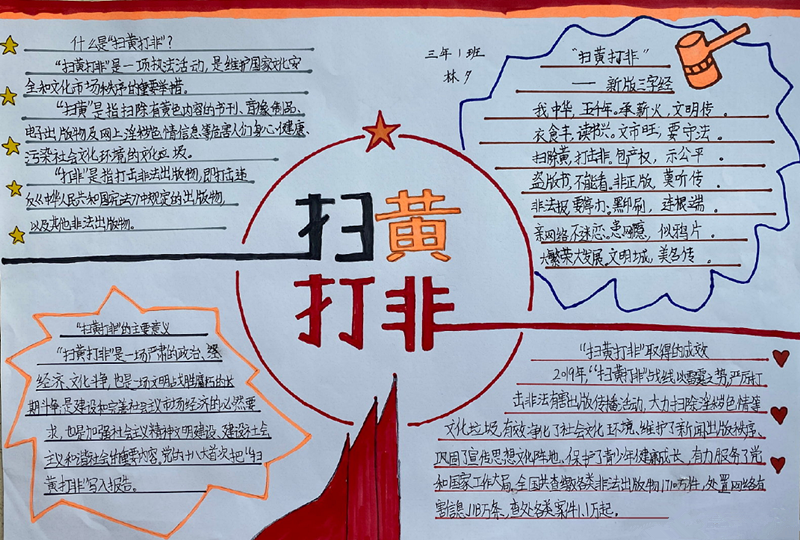 什么是"扫黄打非"?
"扫黄打非"是一项执法活动,是维护国家文化安
全和文化市场秩序的重要举措。
"扫黄"是指扫除有黄色内容的书刊、音像制品、
电子出版物及网上淫秽色情信息等危害人们身心健康、
污染社会文化环境的文化垃圾。
"打非"是指打击非法出版物,即打击违
反《中华人民共和国宪法》中规定的出版物,
以及其他非法出版物。
三年1班
"扫黄打非"
— 新版三字经
我中华,五千年。承薪火,文明传。
衣食丰,读书兴。文市旺,要守法。
扫除黄,打击非。包产权,示公平。
盗版书,不能看。非正版,莫听传。
非法报,要除力。黑印刷,连根端。
亲网络,不迷恋。患网瘾,似鸦片。
大繁荣,大发展。文明城,美名传。
扫黄
打非
"扫黄打非"的主要意义
"扫黄打非"是一场严肃的政治、
经济、文化斗争,也是一场文明战胜腐朽的长
期斗争,是建设和完善社会主义市场经济的必然要
求,也是加强社会主义精神文明建设、建设社会
主义和谐社会的重要内容,党的十八大首次把"扫
黄打非"写入报告。
"扫黄打非"取得的成效
2019年,"扫黄打非"战线以雷霆之势,严厉打
击非法有害出版传播活动,大力扫除淫秽色情等
文化垃圾,有效净化了社会文化环境、维护了新闻出版秩序、
巩固了宣传思想文化阵地、保护了青少年健康成长,有力服务了党
和国家工作大局。全国共查缴各类非法出版物1710万件,处置网络有
害信息1118万条,查处各类案件1.1万起。